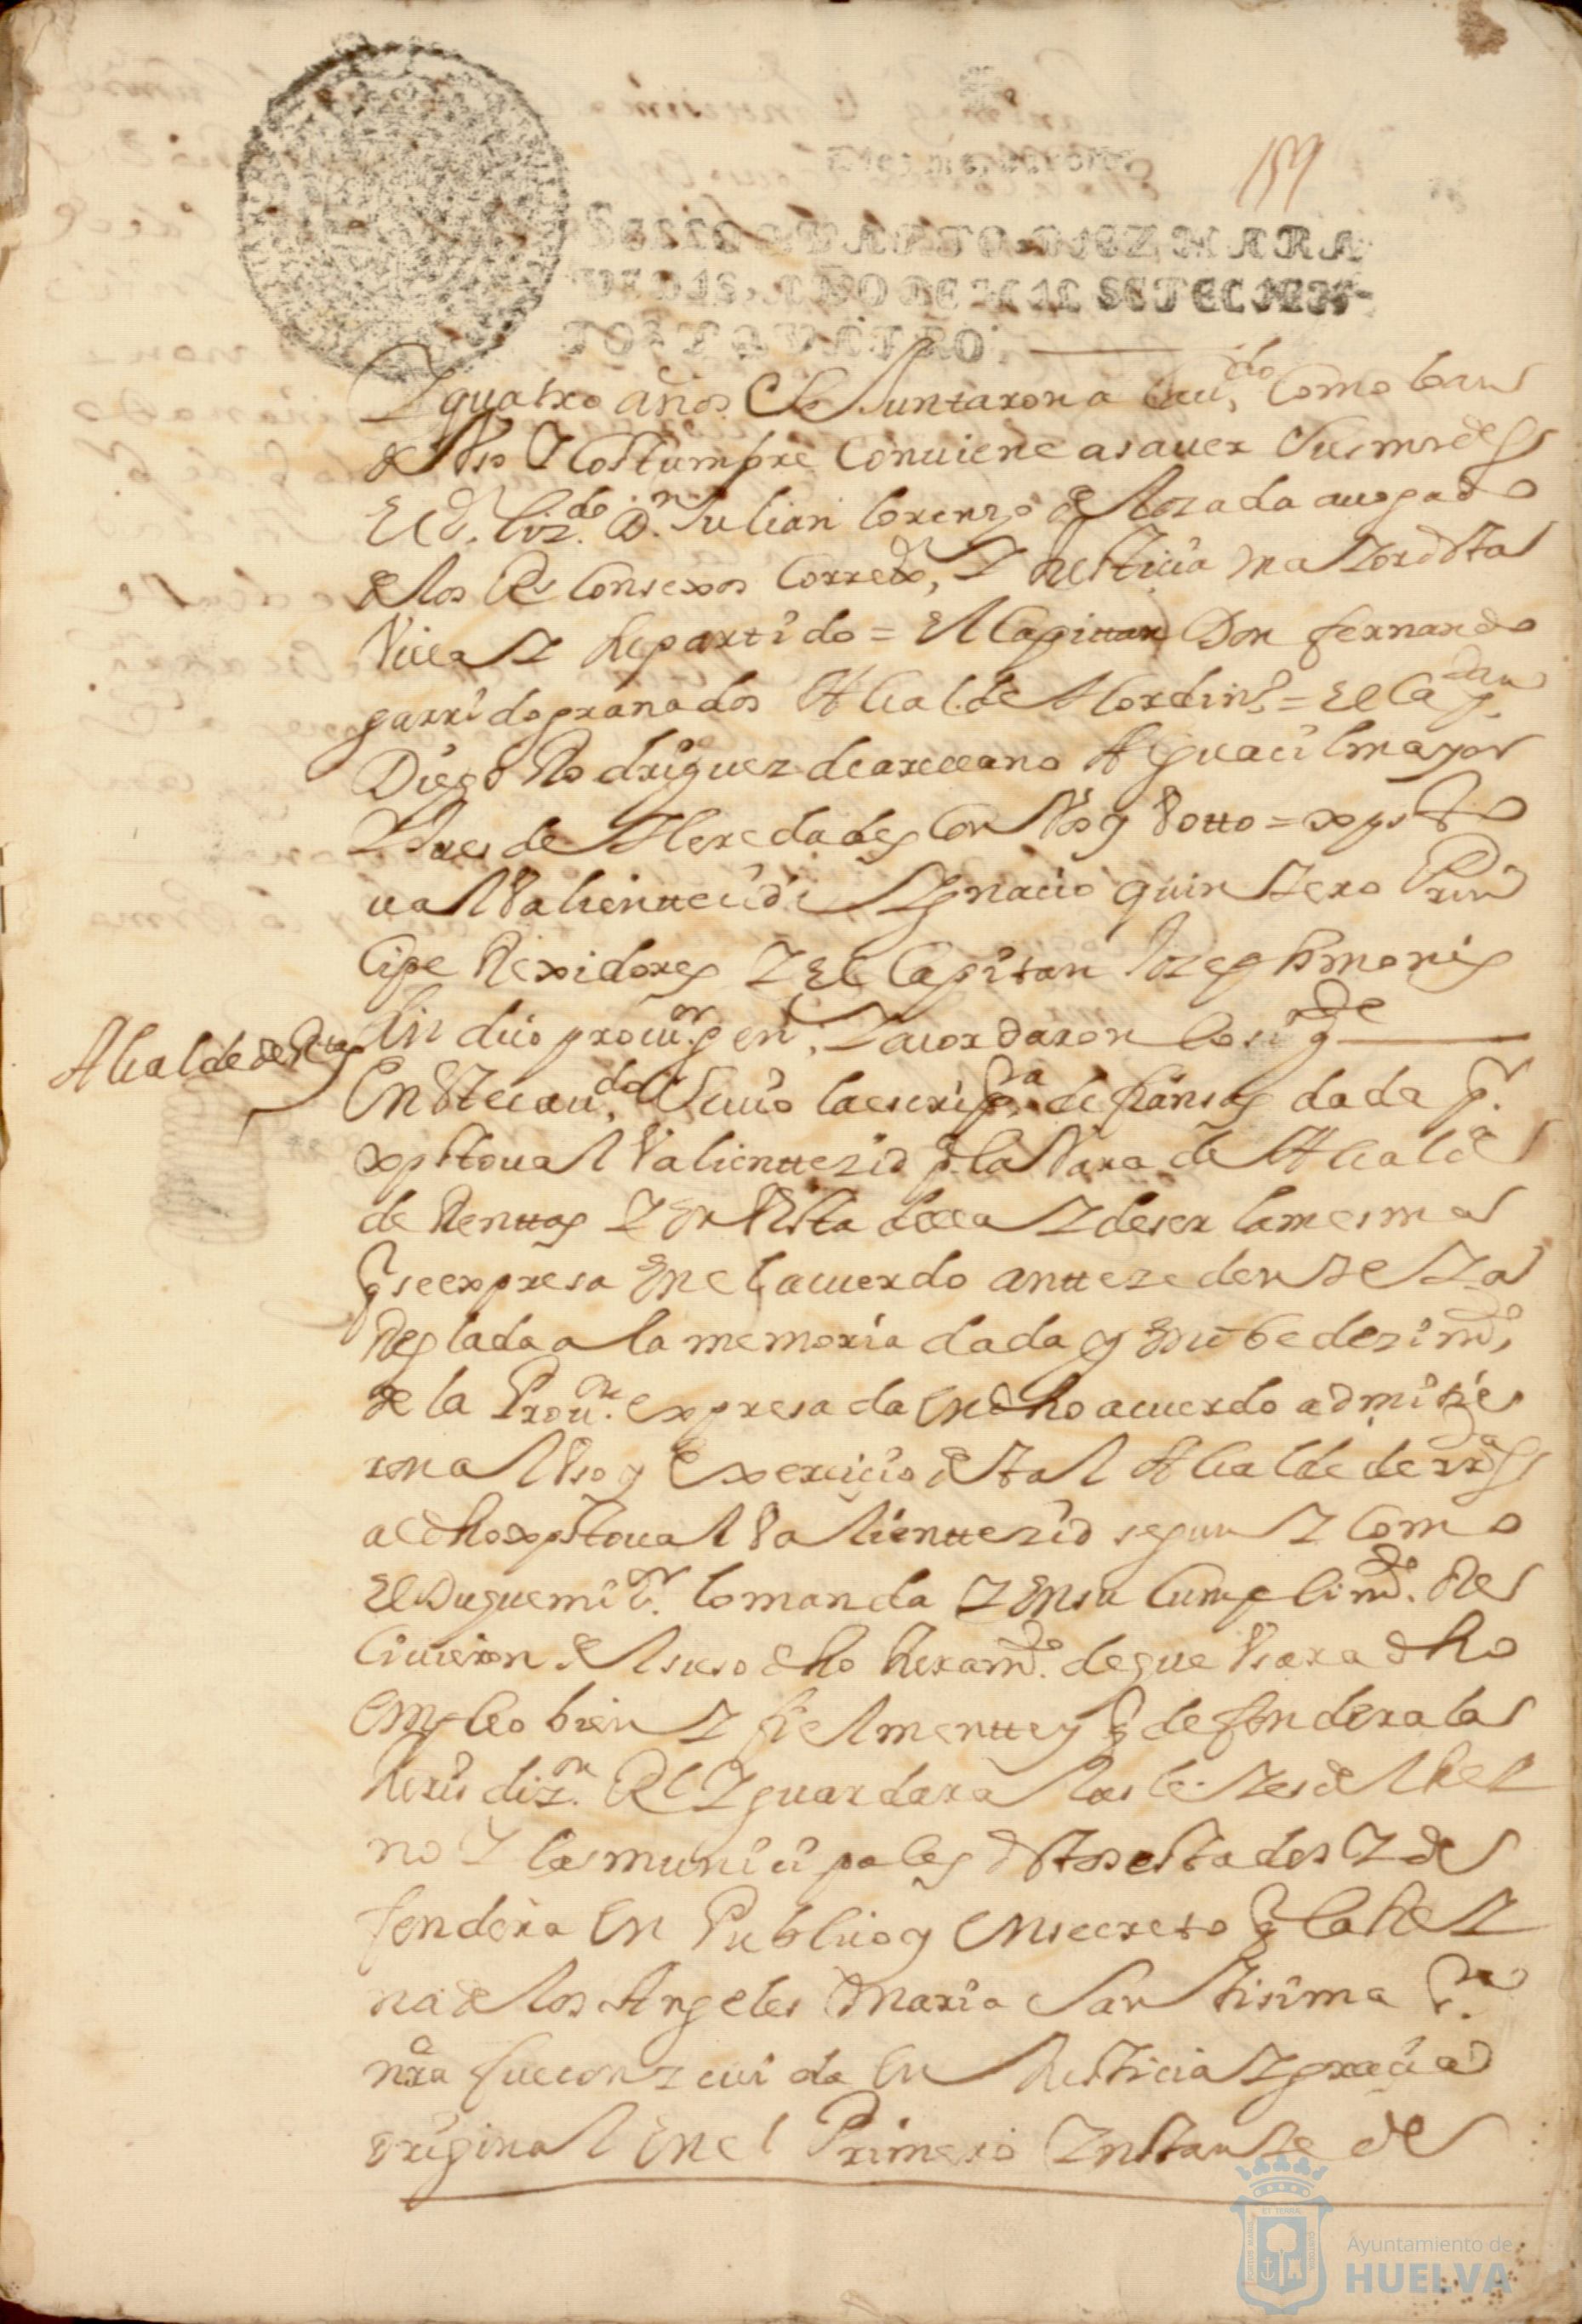 Diez maravedis
159
SELLO QVARTO, DIEZ MARA
VEDIS, AÑO DE MIL SETECIEN-
TOS Y QVATRO.
Y quatro años Se Juntaron a Cau.do Como lo an
de Vso Y Costumbre Conuiene asauer Sus mrdes
El S. liz.do D.n Julian lorenzo de lozada auogado
de los Rs Consexos Correxr, Y Justicia Mayor desta
Villa Y Su partido = El Capitan Don fernando
garrido granados Alcalde Hordin.o = El Cap.an
Diego Rodriguez de arellano Alguacil mayor
Jues de Heredades Con Vos y Votto = xpsto
ual Valiente cid i Ygnacio quintero Prin
cipe Rexidores Y El Capitan Joseph moris
Sindico procu.or gen.l Y acordaron lo sig.de
Alcalde de Rtas
En Este cau.do Se uio la escrip.ra de fiansas dada p.r
xpstoual Valiente zid p.a la Vara de Alcalde
de Rentas Y En Vista della Y de ser la mesma
q se expresa En el acuerdo antezedente Y a
Reglada a la memoria dada y En obedezim.to
de la Prou.on expresada En dho acuerdo admitie
ron al Vso y Exercicio de tal Alcalde de rtas
al dho xpstoual Valiente zid segun Y Como
El Duque mi S.r lo manda Y En su Cumplim.to Re
ciuieron del suso dho Juram.to de que Vsara dho
Empleo bien Y fielmente y q defendera la
Jurisdiz.on Rl Y guardara las leyes del Rey
no Y las municipales destos estados Y de
fendera En Publico y En secreto q la Rey
na de los Angeles Maria Santisima S.ra
nra fue conzeuida En Justicia Y gracia
original En el Primero Ynstante de
Ayuntamiento de
HUELVA